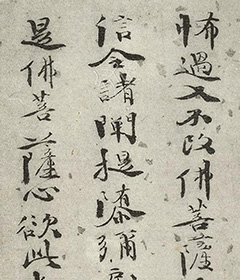 怖過又不改佛菩薩
信令諸闡提隨彌
是佛菩薩心欲此